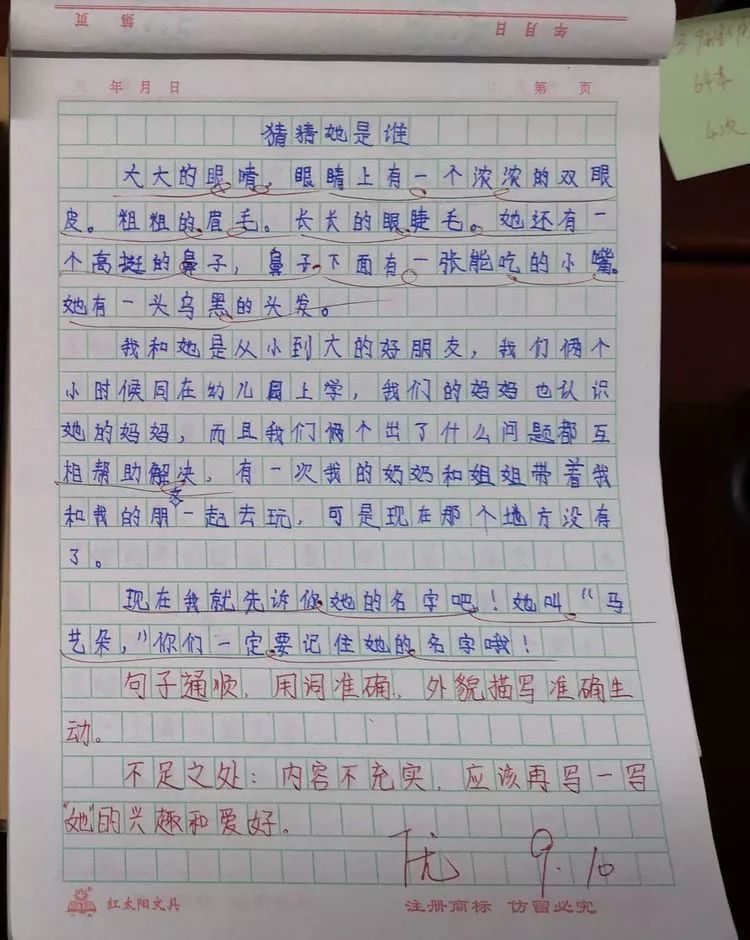 页 第 日 月 年
年 月 日 第 页
猜猜她是谁
大大的眼睛，眼睛上有一个浓浓的双眼
皮。粗粗的眉毛。长长的眼睫毛。她还有一
个高挺的鼻子，鼻子下面有一张能吃的小嘴。
她有一头乌黑的头发。
我和她是从小到大的好朋友，我们俩个
小时候同在幼儿园上学，我们的妈妈也认识
她的妈妈，而且我们俩个出了什么问题都互
相帮助解决，有一次我的奶奶和姐姐带着我
和我的朋一起去玩，可是现在那个地方没有
友
了。
现在我就先诉你她的名字吧！她叫“马
艺朵，”你们一定要记住她的名字哦！
句子通顺，用词准确，外貌描写准确生
动。
不足之处：内容不充实，应该再写一写
“她”的兴趣和爱好。
优 9.10
红太阳文具 注册商标 仿冒必究
64本